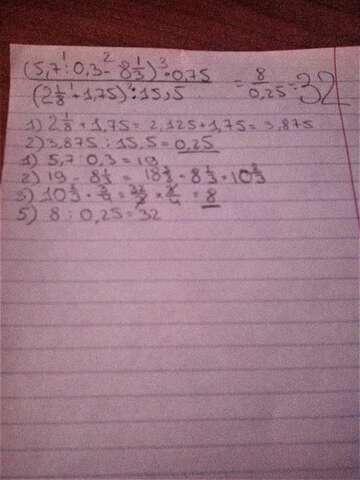 (5,7 : 0,3 - 8 1/3) · 0,75
(2 1/8 + 1,75) : 15,5
= 8/0,25 = 32
1) 2 1/8 + 1,75 = 2,125 + 1,75 = 3,875
2) 3,875 : 15,5 = 0,25
1) 5,7 : 0,3 = 19
2) 19 - 8 1/3 = 18 3/3 - 8 1/3 = 10 2/3
3) 10 2/3 · 3/4 = 32/3 · 3/4 = 8
5) 8 : 0,25 = 32